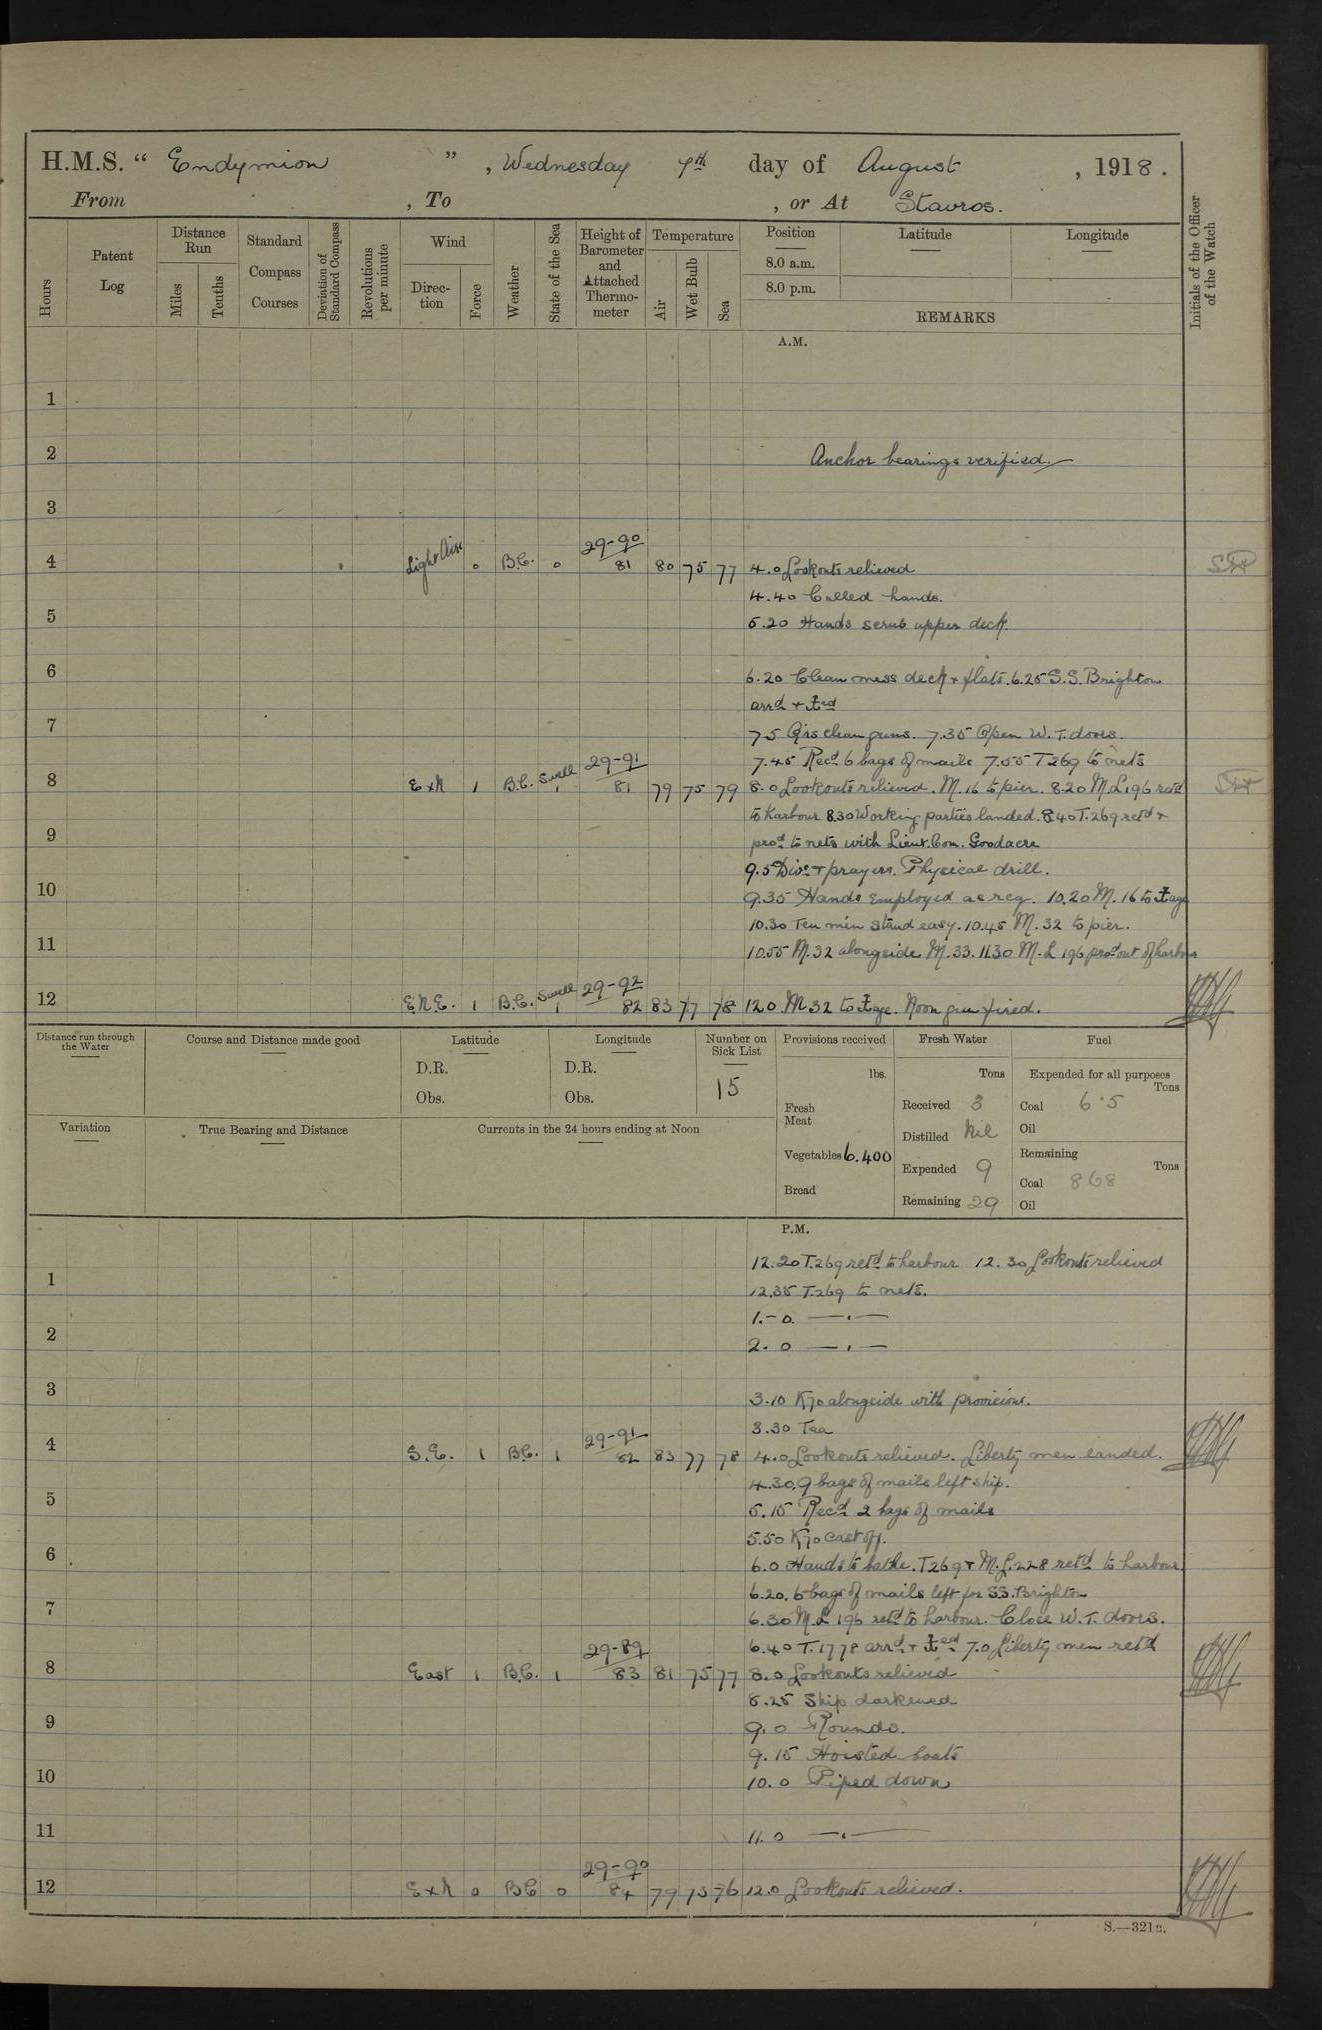 H.M.S. “ Endymion ” , Wednesday 7th day of August , 1918 .
From , To , or At Stavros.
Hours Patent Log Distance Run Miles Tenths Standard Compass Courses Deviation of Standard Compass Revolutions per minute Wind Direction Force Weather State of the Sea Height of Barometer and Attached Thermometer Temperature Air Wet Bulb Sea Position 8.0 a.m. 8.0 p.m. Latitude Longitude Initials of the Officer of the Watch
REMARKS
A.M.
1
2 Anchor bearings verified.
3
4 Light Airs 0 B.C. 0 29-90 81 80 75 77 4.0 Lookouts relieved
4.40 Called hands.
5 5.20 Hands scrub upper deck.
6 6.20 Clean mess deck + flats. 6.25 S.S. Brighton
arrd + ⚓ed
7 7.5 Qrs clean guns. 7.35 Open W.T. doors.
7.45 Recd 6 bags of mails 7.55 T269 to nets
8 ExN 1 B.C. Swell 1 29-91 81 79 75 79 8.0 Lookouts relieved. M.16 to pier. 8.20 M.L 196 retd
to harbour 8.30 Working parties landed. 8.40 T.269 retd +
9 procd to nets with Lieut. Com. Goodacre
9.5 Divns + prayers. Physical drill.
10 9.35 Hands employed as req. 10.20 M.16 to ⚓age
10.30 Ten min stand easy. 10.45 M.32 to pier.
11 10.55 M.32 alongside M.33. 11.30 M.L 196 procd out of harbour
12 E.N.E. 1 B.C. Swell 1 29-92 82 83 77 78 12.0 M32 to ⚓age. Noon gun fired.
Distance run through the Water Course and Distance made good Latitude Longitude Number on Sick List Provisions received Fresh Water Fuel
D.R. D.R. 15 lbs. Tons Expended for all purposes Tons
Obs. Obs. Fresh Meat Received 3 Coal 6.5
Variation True Bearing and Distance Currents in the 24 hours ending at Noon Distilled Nil Oil
Vegetables 6.400 Expended 9 Remaining Tons
Coal 868
Bread Remaining 29 Oil
P.M.
12.20 T.269 retd to harbour 12.30 Lookouts relieved
1 12.35 T.269 to nets.
1.-0. —·—
2 2.0 —·—
3 3.10 K70 alongside with provisions.
3.30 Tea
4 S.E. 1 B.C. 1 29-91 82 83 77 78 4.0 Lookouts relieved. Liberty men landed.
4.30. 9 bags of mails left ship.
5 5.15 Recd 2 bags of mails
5.50 K70 cast off.
6 6.0 Hands to bathe. T269 + M.L. 228 retd to harbour.
6.20. 6 bags of mails left for S.S. Brighton
7 6.30 M.L 196 retd to harbour. Close W.T. doors.
6.40 T.1778 arrd + ⚓ed 7.0 Liberty men retd
8 East 1 B.C. 1 29-89 83 81 75 77 8.0 Lookouts relieved
8.25 Ship darkened
9 9.0 Rounds.
9.15 Hoisted boats
10 10.0 Piped down
11 11.0 —·—
12 ExN 0 BC 0 29-90 84 79 75 76 12.0 Lookouts relieved.
S.—321B.